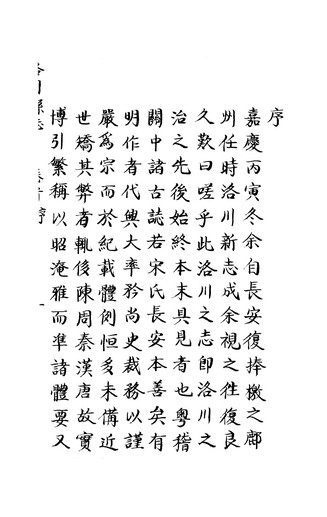 序
嘉慶丙寅冬余自長安復捧檄之鄜
州任時洛川新志成余視之徃復良
久歎曰嗟乎此洛川之志即洛川之
治之先後始終本末具見者也粤稽
關中諸古誌若宋氏長安本善矣有
明作者代興大率矜尚史裁務以謹
嚴爲宗而於紀載體例恒多未備近
世矯其弊者輒侈陳周秦漢唐故實
博引繁稱以昭淹雅而準諸體要又